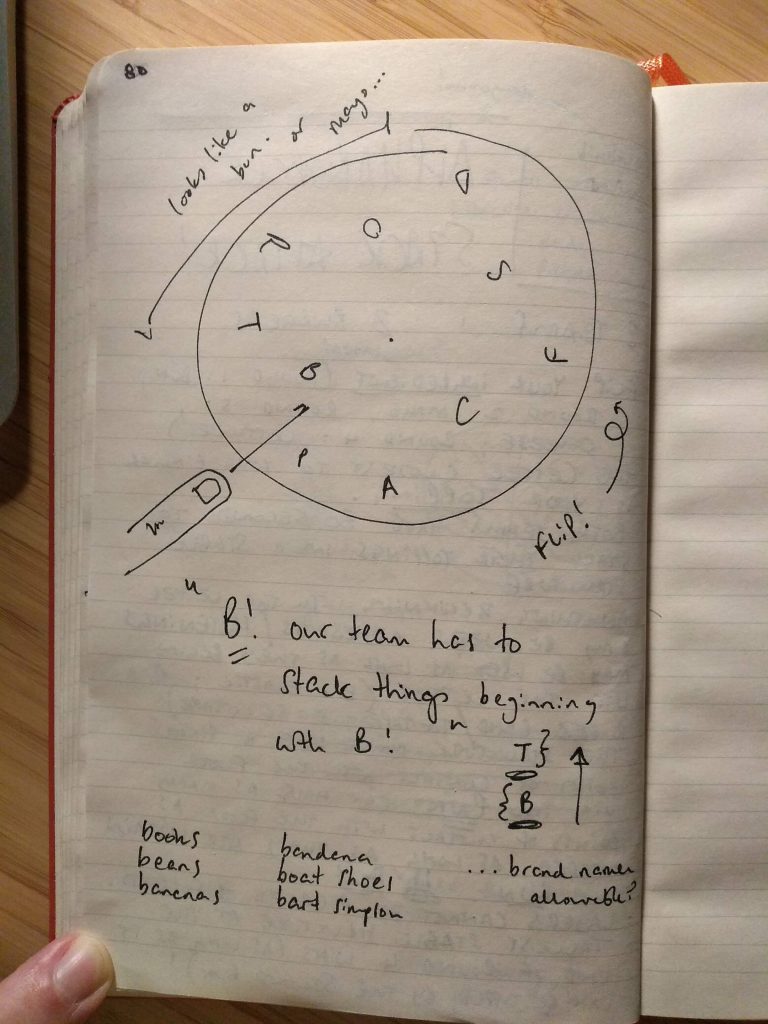 80
looks like a
bun. or mayo...
D
O
R
S
T
F
B
C
P
A
D
m
FLIP!
"B! our team has to
stack things beginning
with B!"
T}
{B
books
beans
bananas
bandena
boat shoes
bart simpson
... brand names
allowable?